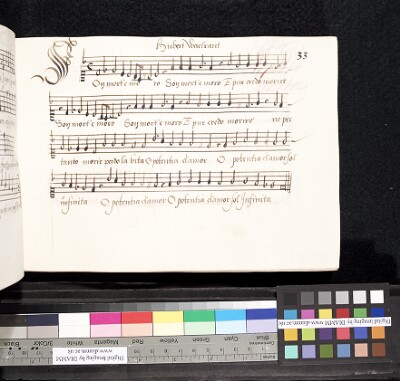 Hubert Vvaelrant
33
Oy mort'e mo ro Soy mort'e moro E pur credo morire
Soy mort'e moro Soy mort'e moro E pur credo morire ne per
tanto morir perdo la vita O potentia d'amor O potentia d'amor sol
infinita O potentia d'amor O potentia d'amor sol Infinita
Digital Imaging by DIAMM www.diamm.ac.uk
Blue Cyan Green Yellow Red Magenta White 3/Color Black
Digital Imaging by DIAMM
www.diamm.ac.uk